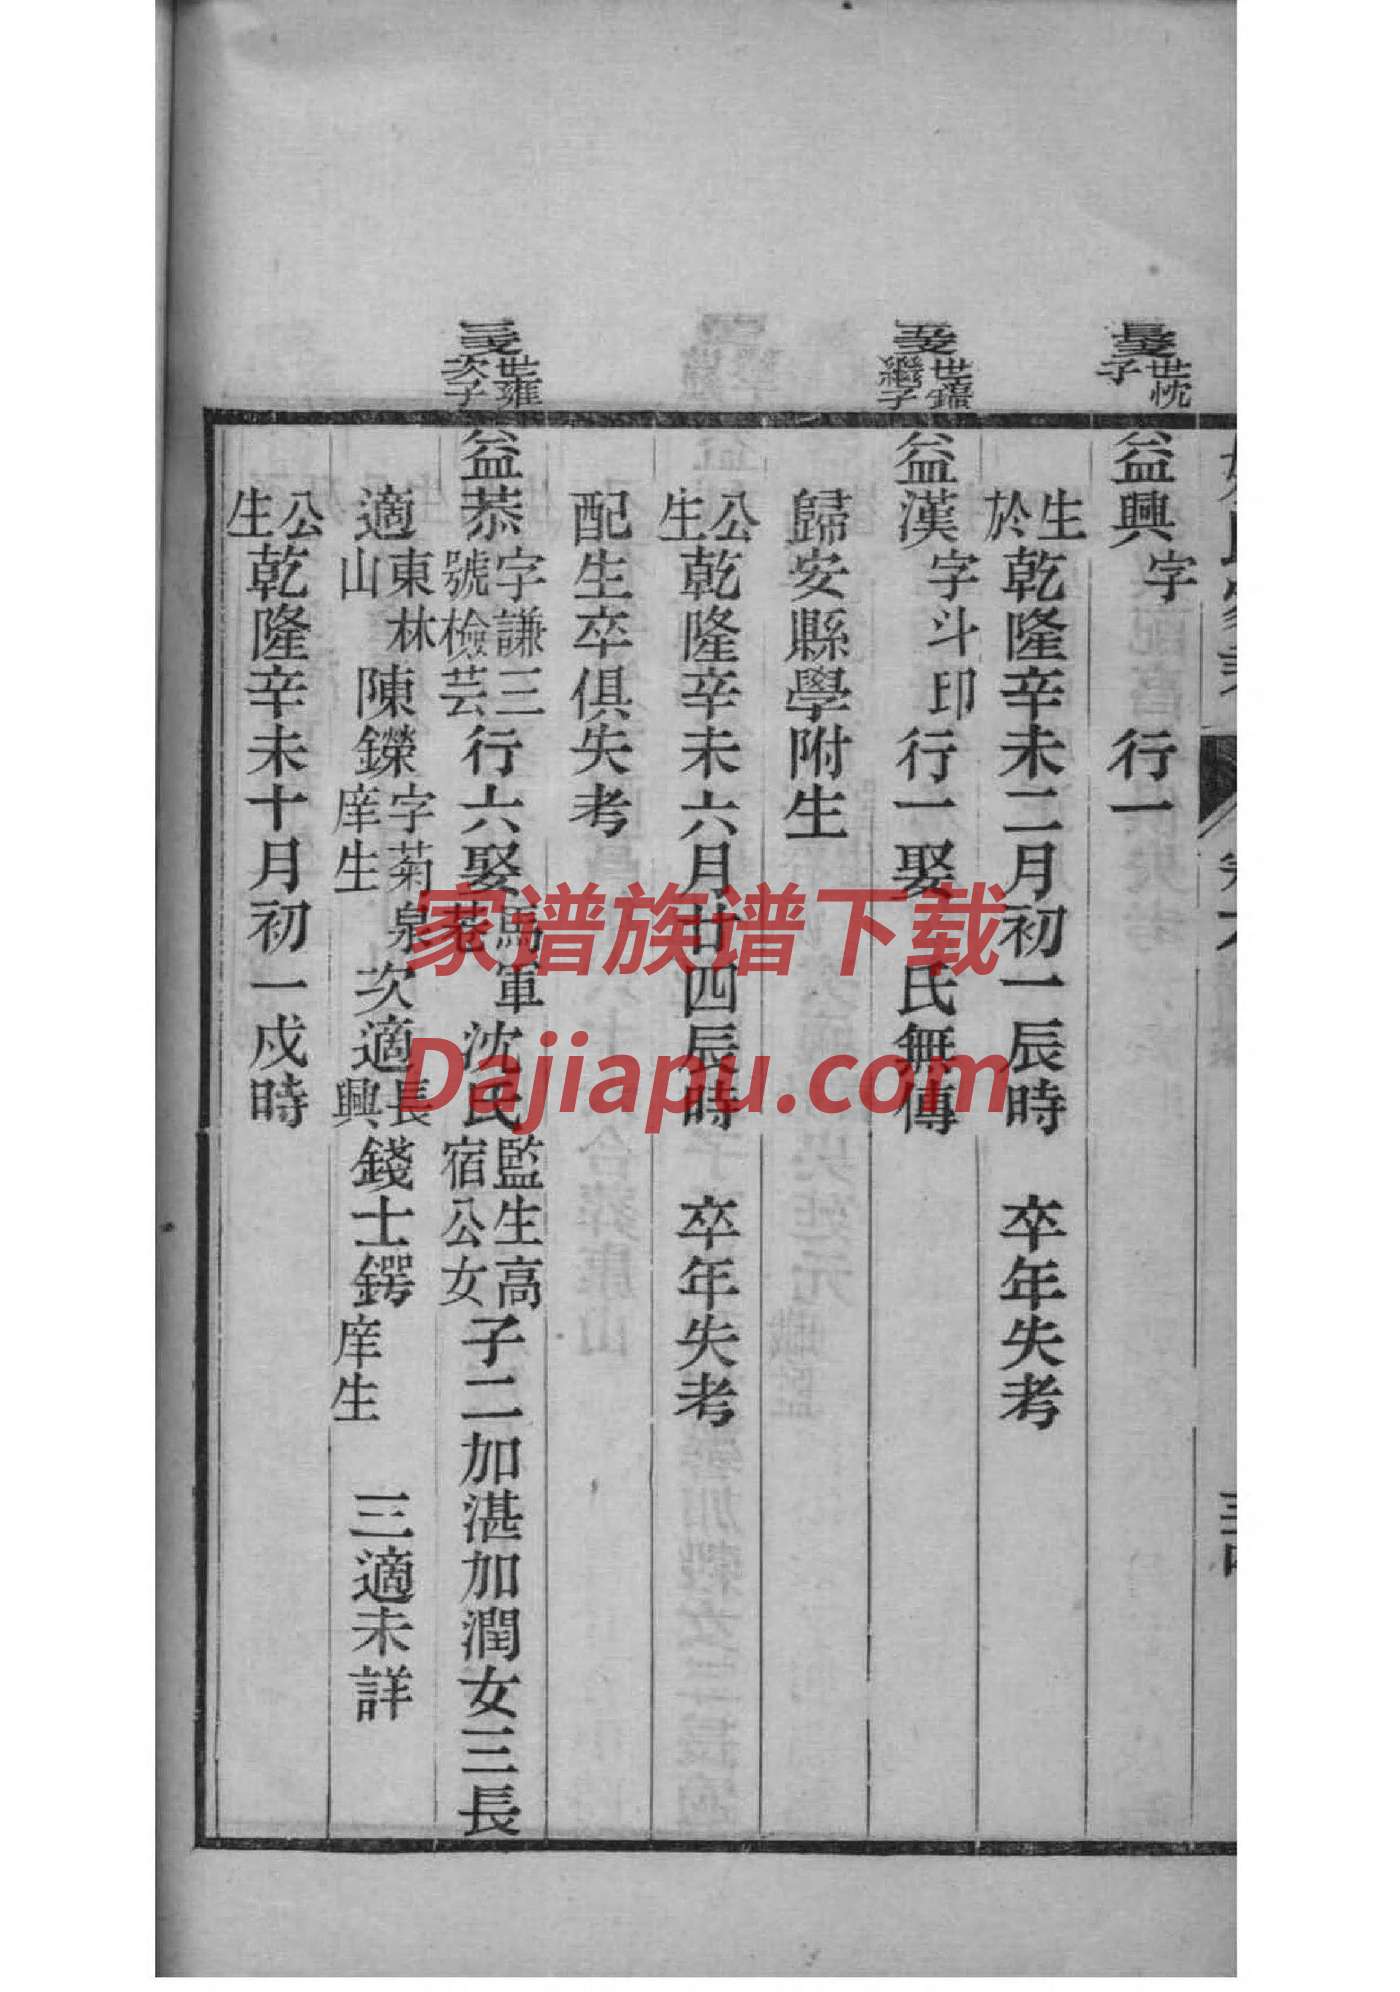 卷六
三四
長支世忱子
益興 字 行一
生於乾隆辛未二月初一辰時 卒年失考
五支世鑐繼子
益漢 字斗印 行一娶 氏無傳
歸安縣學附生
公生乾隆辛未六月廿四辰時 卒年失考
配生卒俱失考
三支世雍次子
益恭 字謙三號檢芸 行六娶馬軍巷沈氏 監生高宿公女 子二加湛加潤女三長
適東林山陳鑅 字菊泉庠生 次適長興錢士鍔 庠生 三適未詳
公生乾隆辛未十月初一戍時
家谱族谱下载
Dajiapu.com